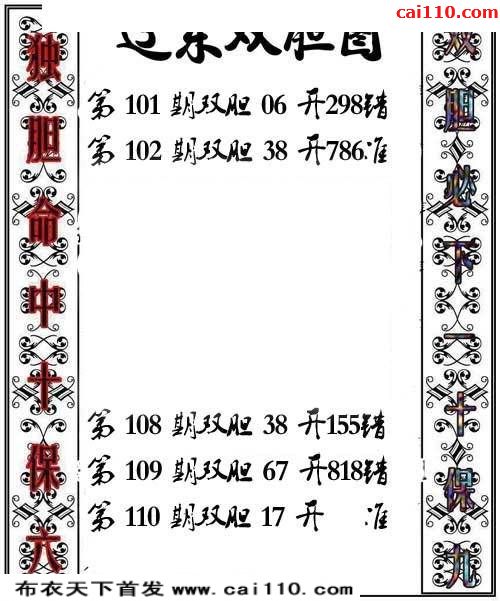 cai110.com
辽东双胆图
独胆命中十保六
第 101 期双胆 06 开298错
第 102 期双胆 38 开786准
第 108 期双胆 38 开155错
第 109 期双胆 67 开818错
第 110 期双胆 17 开 准
双胆必下一十保九
布衣天下首发 www.cai110.com